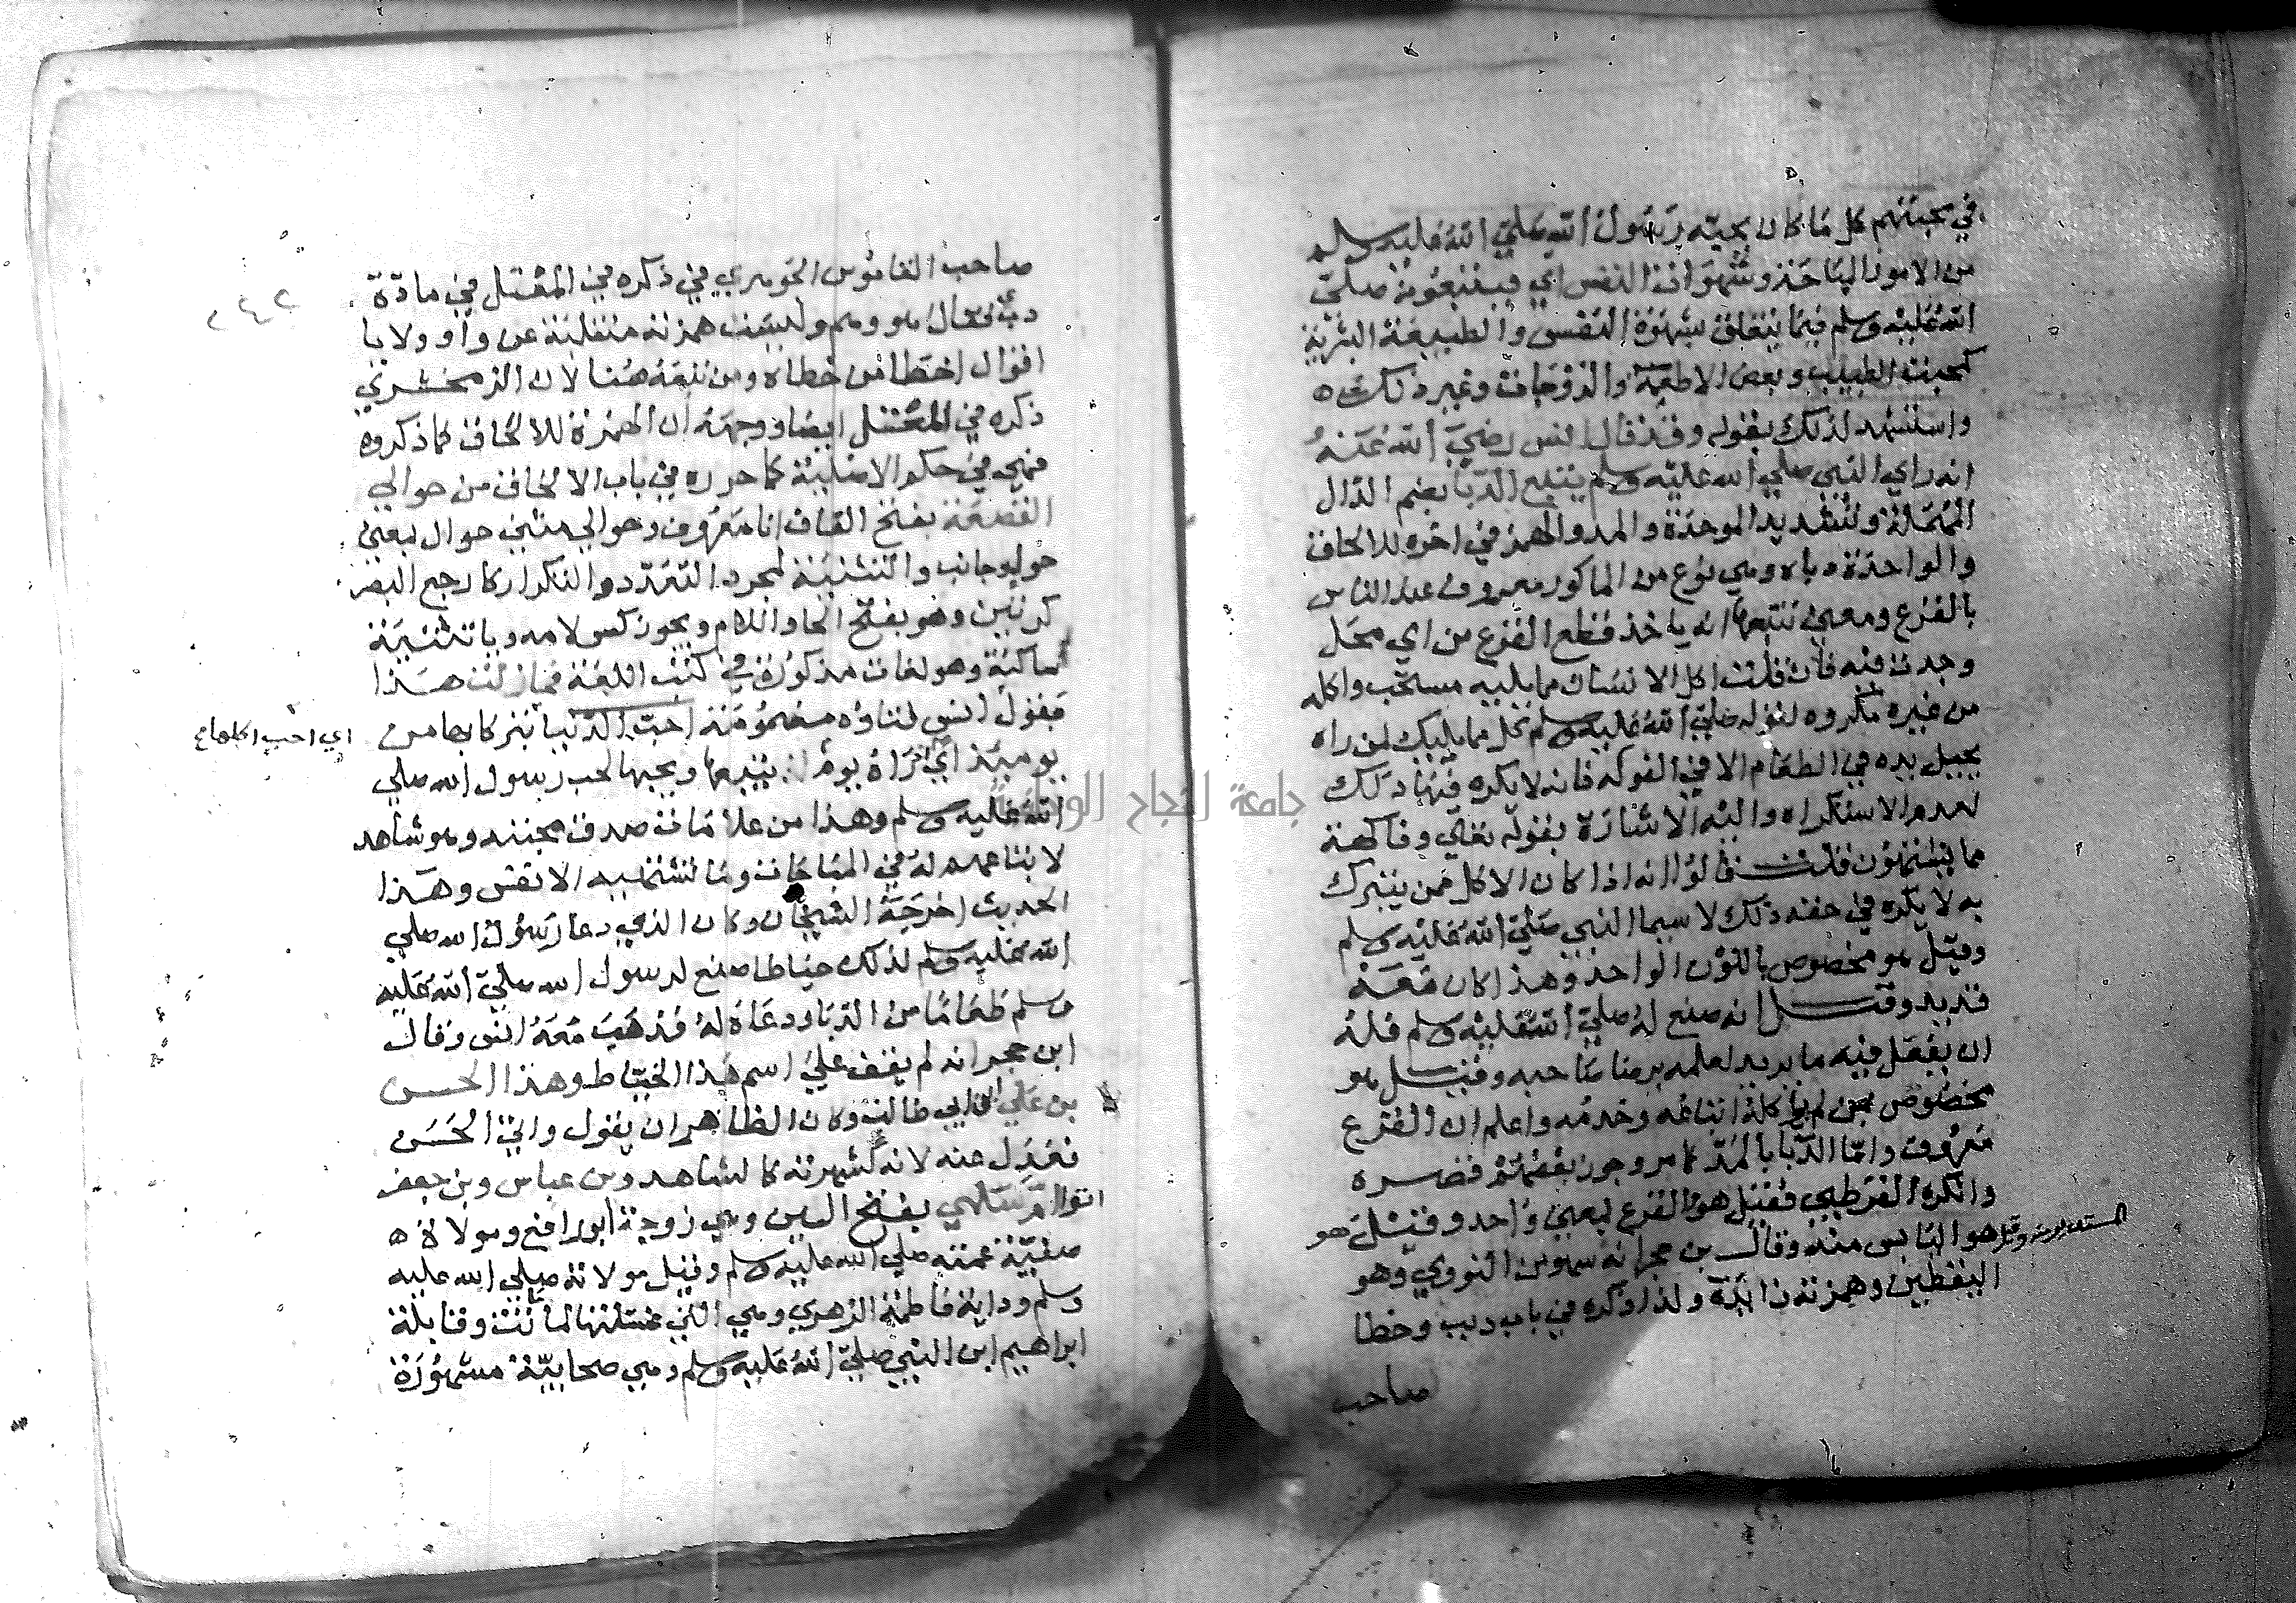 في محبتهم كل ما كان يحبه رسول الله صلي الله عليه وسلم
من الامور المباحة وشهوات النفس اي فيتبعونه صلي
الله عليه وسلم فيما يتعلق بشهوة النفس والطبيعة البشرية
كمحبت الطيب وبعض الاطعمة والزوجات وغير ذلك
واستشهد لذلك بقوله وقد قال انس رضي الله عنه
انه راي النبي صلي الله عليه وسلم يتتبع الدبا بضم الدال
المهملة وتشديد الموحدة والمد والهمز في اخره للالحاق
والواحدة دباه وهي نوع من الماكول معروف عند الناس
بالقرع ومعني تتبعها انه ياخذ قطع القرع من اي محل
وجدت فيه فان قلت اكل الانسان مما يليه مستحب واكله
من غيره مكروه لقوله صلي الله عليه وسلم كل مما يليك لمن راه
يجيل يده في الطعام الا في الفوكه فانه لا يكره فيها ذلك
لعدم الاستكراه واليه الاشارة بقوله تعالي وفاكهة
مما يشتهون قلت قالوا انه اذا كان الاكل ممن يتبرك
به لا يكره في حقه ذلك لا سيما النبي صلي الله عليه وسلم
وقيل هو مخصوص باللون الواحد وهذا كان معه
قديد وقيل انه صنع له صلي الله عليه وسلم فله
ان يفعل فيه ما يريد لعلمه برضا صاحبه وقيل هو
مخصوص بمن لم ياكله اتباعه وخدمه واعلم ان القرع
معروف واما الدبا بالمد كما مر وجوز بعضهم قصره
وانكره القرطبي فقيل هو القرع بمعني واحد وقيل هو
المستدير منه وقيل هو اليابس منه وقال بن حجر انه سهو من النووي وهو
اليقطين وهمزته زائدة ولذا ذكره في باب دبب وخطا
صاحب
صاحب القاموس الجوهري في ذكره في المعتل في مادة
دبي فقال هو وهم وليست همزته منقلبة عن واو ولا يا
اقول اخطا من خطاه ومن تبعه هنا لان الزمخشري
ذكره في المعتل ايضا ووجهه ان الهمزة للالحاق كما ذكروه
فهي في حكم الاصلية كما حرره في باب الالحاق من حوالي
القصعة بفتح القاف انا معروف وحوالي مثني حوال بمعني
حول وجانب والتثنية لمجرد التعدد والتكرار كارجع البصر
كرتين وهو بفتح الحا واللام ويجوز كسر لامه ويا تثنية
ساكنة وهو لغات مذكورة في كتب اللغة فما زلت هذا
مقول انس لتناوه مضمومة احب الدبا تبركا بها من
اي احب اكلها ع
يومئذ اي اراه يومئذ يتتبعها ويحبها لحب رسول الله صلي
الله عليه وسلم وهذا من علامات صدق محبته وهو شاهد
لاتباعهم له في المباحات وما تشتهيه الانفس وهذا
الحديث اخرجه الشيخان وكان الذي دعا رسول الله صلي
الله عليه وسلم لذلك خياطا صنع لرسول الله صلي الله عليه
وسلم طعاما من الدبا ودعاه له فذهب معه انس وقال
ابن حجر انه لم يقف علي اسم هذا الخياط وهذا الحسن
بن علي ابن ابي طالب وكان الظاهر ان يقول واتي الحسن
فعدل عنه لانه لشهرته كالشاهد وبن عباس وبن جعفر
اتوا سلمي بفتح السين وهي زوجة ابو رافع ومولاة
صفية عمته صلي الله عليه وسلم وقيل مولاته صلي الله عليه
وسلم وداية فاطمة الزهري وهي التي غسلتها لما ماتت وقابلة
ابراهيم ابن النبي صلي الله عليه وسلم وهي صحابية مشهورة
٢٤٢
جامعة النجاح الوطنية